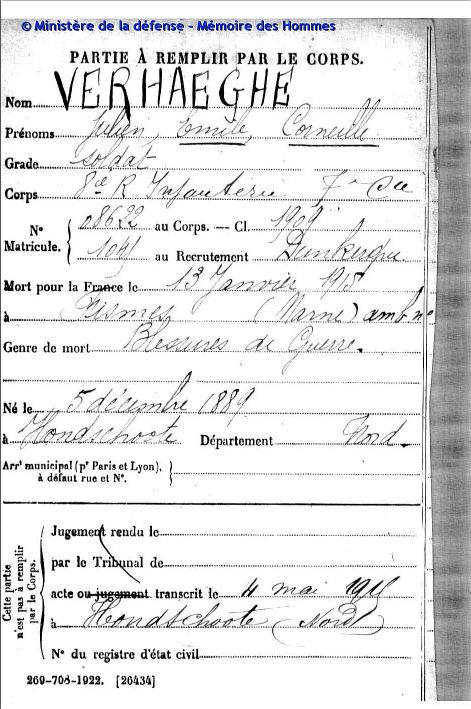 © Ministère de la défense - Mémoire des Hommes
PARTIE À REMPLIR PAR LE CORPS.
Nom VERHAEGHE
Prénoms Julien, Emile, Corneille
Grade soldat
Corps 8e R Infanterie 7e Cie
N° Matricule. { 08622 au Corps. — Cl. 1909
1041 au Recrutement Dunkerque
Mort pour la France le 13 Janvier 1915
à Fismes (Marne) amb. n°
Genre de mort Blessures de Guerre.
Né le 5 décembre 1889
à Hondschoote Département Nord.
Arrt municipal (pr Paris et Lyon), à défaut rue et N°. }
Cette partie n'est pas à remplir par le Corps.
Jugement rendu le
par le Tribunal de
acte ou jugement transcrit le 4 mai
à Hondschoote (Nord)
N° du registre d'état civil
269-708-1922. [26434]